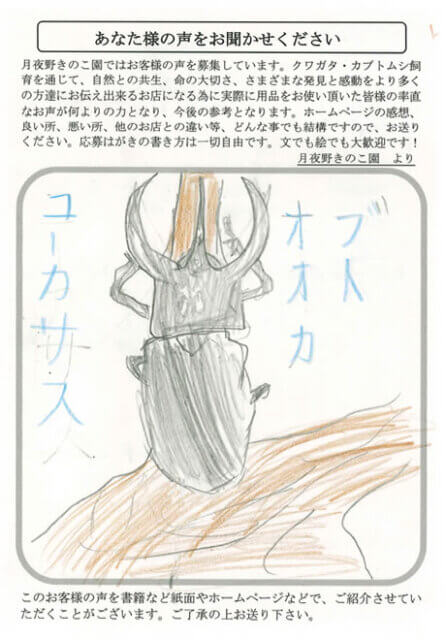 あなた様の声をお聞かせください
月夜野きのこ園ではお客様の声を募集しています。クワガタ・カブトムシ飼
育を通じて、自然との共生、命の大切さ、さまざまな発見と感動をより多く
の方達にお伝え出来るお店になる為に実際に用品をお使い頂いた皆様の率直
なお声が何よりの力となり、今後の参考となります。ホームページの感想、
良い所、悪い所、他のお店との違い等、どんな事でも結構ですので、お送り
ください。応募はがきの書き方は一切自由です。文でも絵でも大歓迎です！
月夜野きのこ園　より
ブト
オオカ
コーカサス
このお客様の声を書籍など紙面やホームページなどで、ご紹介させてい
ただくことがございます。ご了承の上お送り下さい。